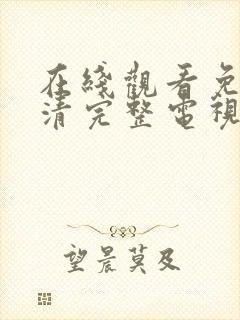 在綫觀看免
清完整電視
望晨莫及